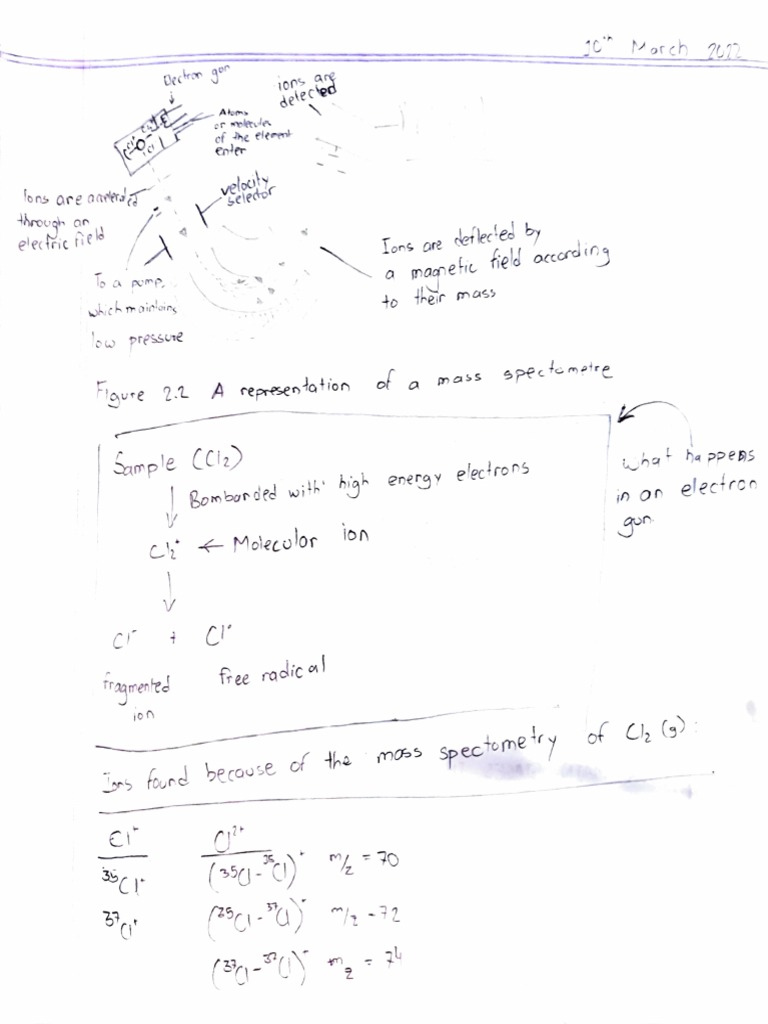 10th March 2022
Electron gun
ions are
detected
Atoms
or molecules
of the element
enter
Ions are accelerated
through an
electric field
velocity
selector
Ions are deflected by
a magnetic field according
to their mass
To a pump,
which maintains
low pressure
Figure 2.2 A representation of a mass spectometre
Sample (Cl2)
Bombarded with high energy electrons
Cl2⁺ ← Molecular ion
what happens
in an electron
gun.
Cl⁺ + Cl•
fragmented free radical
ion
Ions found because of the mass spectometry of Cl2 (g):
Cl⁺ Cl²⁺
³⁵Cl⁺ (³⁵Cl-³⁵Cl)⁺ m/z = 70
³⁷Cl⁺ (³⁵Cl-³⁷Cl)⁺ m/z = 72
(³⁷Cl-³⁷Cl)⁺ m/z = 74